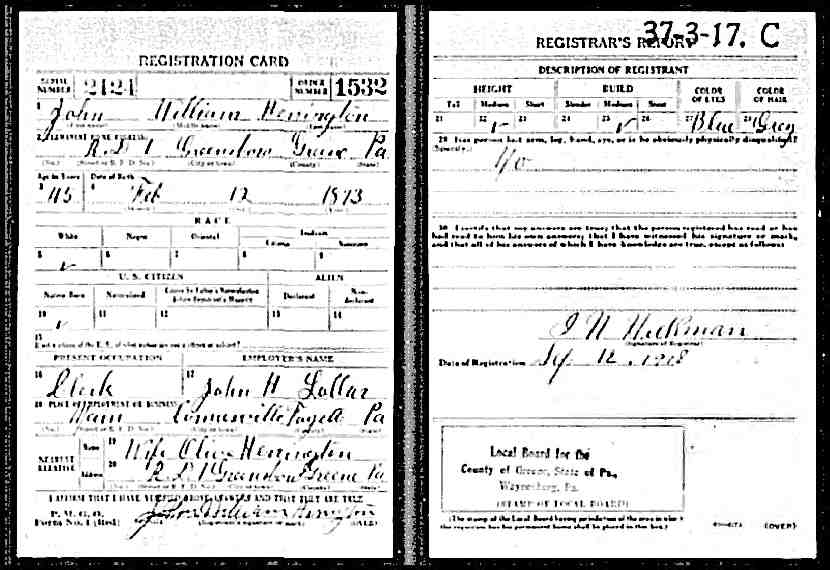 REGISTRATION CARD
SERIAL NUMBER 2424 ORDER NUMBER 1532
1 John William Herrington
(First name) (Middle name) (Last name)
2 PERMANENT HOME ADDRESS:
R.D. 1 Greensboro Greene Pa
(No.) (Street or R. F. D. No.) (City or town) (County) (State)
Age in Years Date of Birth
3 45 4 Feb 12 1873
RACE
White Negro Oriental Indian
Citizen Noncitizen
5 ✓ 6 7 8 9
U. S. CITIZEN ALIEN
Native Born Naturalized Citizen by Father's Naturalization Before Registrant's Majority Declarant Non-declarant
10 ✓ 11 12 13 14
15
PRESENT OCCUPATION EMPLOYER'S NAME
16 Clerk 17 John H
18 PLACE OF EMPLOYMENT OR BUSINESS:
Pa
(No.) (Street or R. F. D. No.) (City or town) (County) (State)
NEAREST RELATIVE Name 19 Wife Olive Herrington
Address 20 R.D. 1 Greensboro Greene Pa
(No.) (Street or R. F. D. No.) (City or town) (County) (State)
I AFFIRM THAT I HAVE VERIFIED ABOVE ANSWERS AND THAT THEY ARE TRUE
P. M. G. O.
Form No. 1 (Red) John William Herrington
(Registrant's signature or mark) (OVER)
37-3-17. C
REGISTRAR'S REPORT
DESCRIPTION OF REGISTRANT
HEIGHT BUILD COLOR OF EYES COLOR OF HAIR
Tall Medium Short Slender Medium Stout
21 22 ✓ 23 24 25 ✓ 26 27 Blue 28 Grey
29 Has person lost arm, leg, hand, eye, or is he obviously physically disqualified?
(Specify.) No
30 I certify that my answers are true; that the person registered has read or has
had read to him his own answers; that I have witnessed his signature or mark,
and that all of his answers of which I have knowledge are true, except as follows:
(Signature of Registrar)
Date of Registration 12, 1918
Local Board for the
County of Greene, State of Pa.,
Waynesburg, Pa.
(STAMP OF LOCAL BOARD)
(The stamp of the Local Board having jurisdiction of the area in which
the registrant has his permanent home shall be placed in this box.)
(OVER)